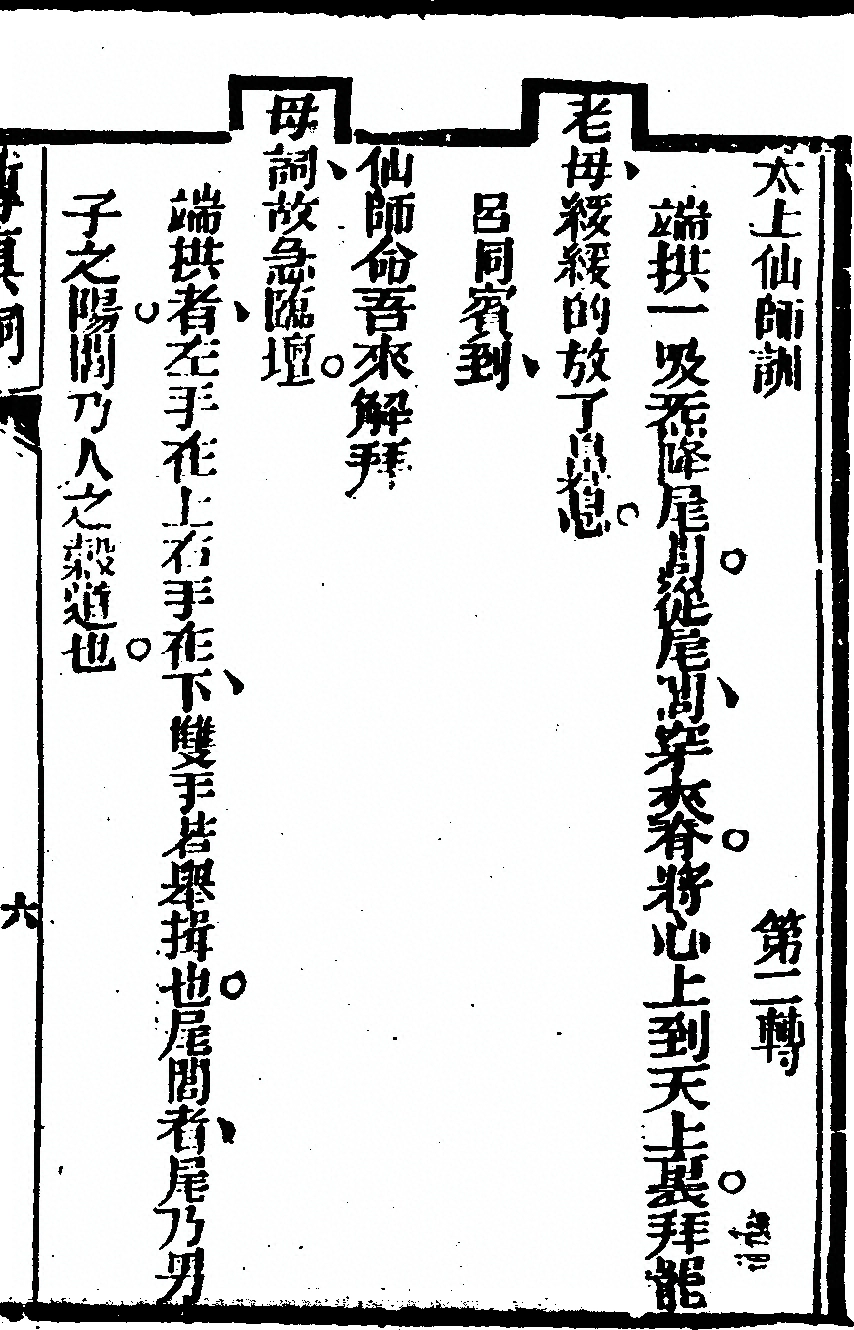 太上仙師訓 第二轉
端拱一吸炁降尾閭從尾閭穿夾脊將心上到天上裏拜罷
老母緩緩的放了鼻息
呂同賓到
仙師命吾來解拜
母詞故急臨壇
端拱者左手在上右手在下雙手若舉揖也尾閭者尾乃男
子之陽閭乃人之穀道也
六